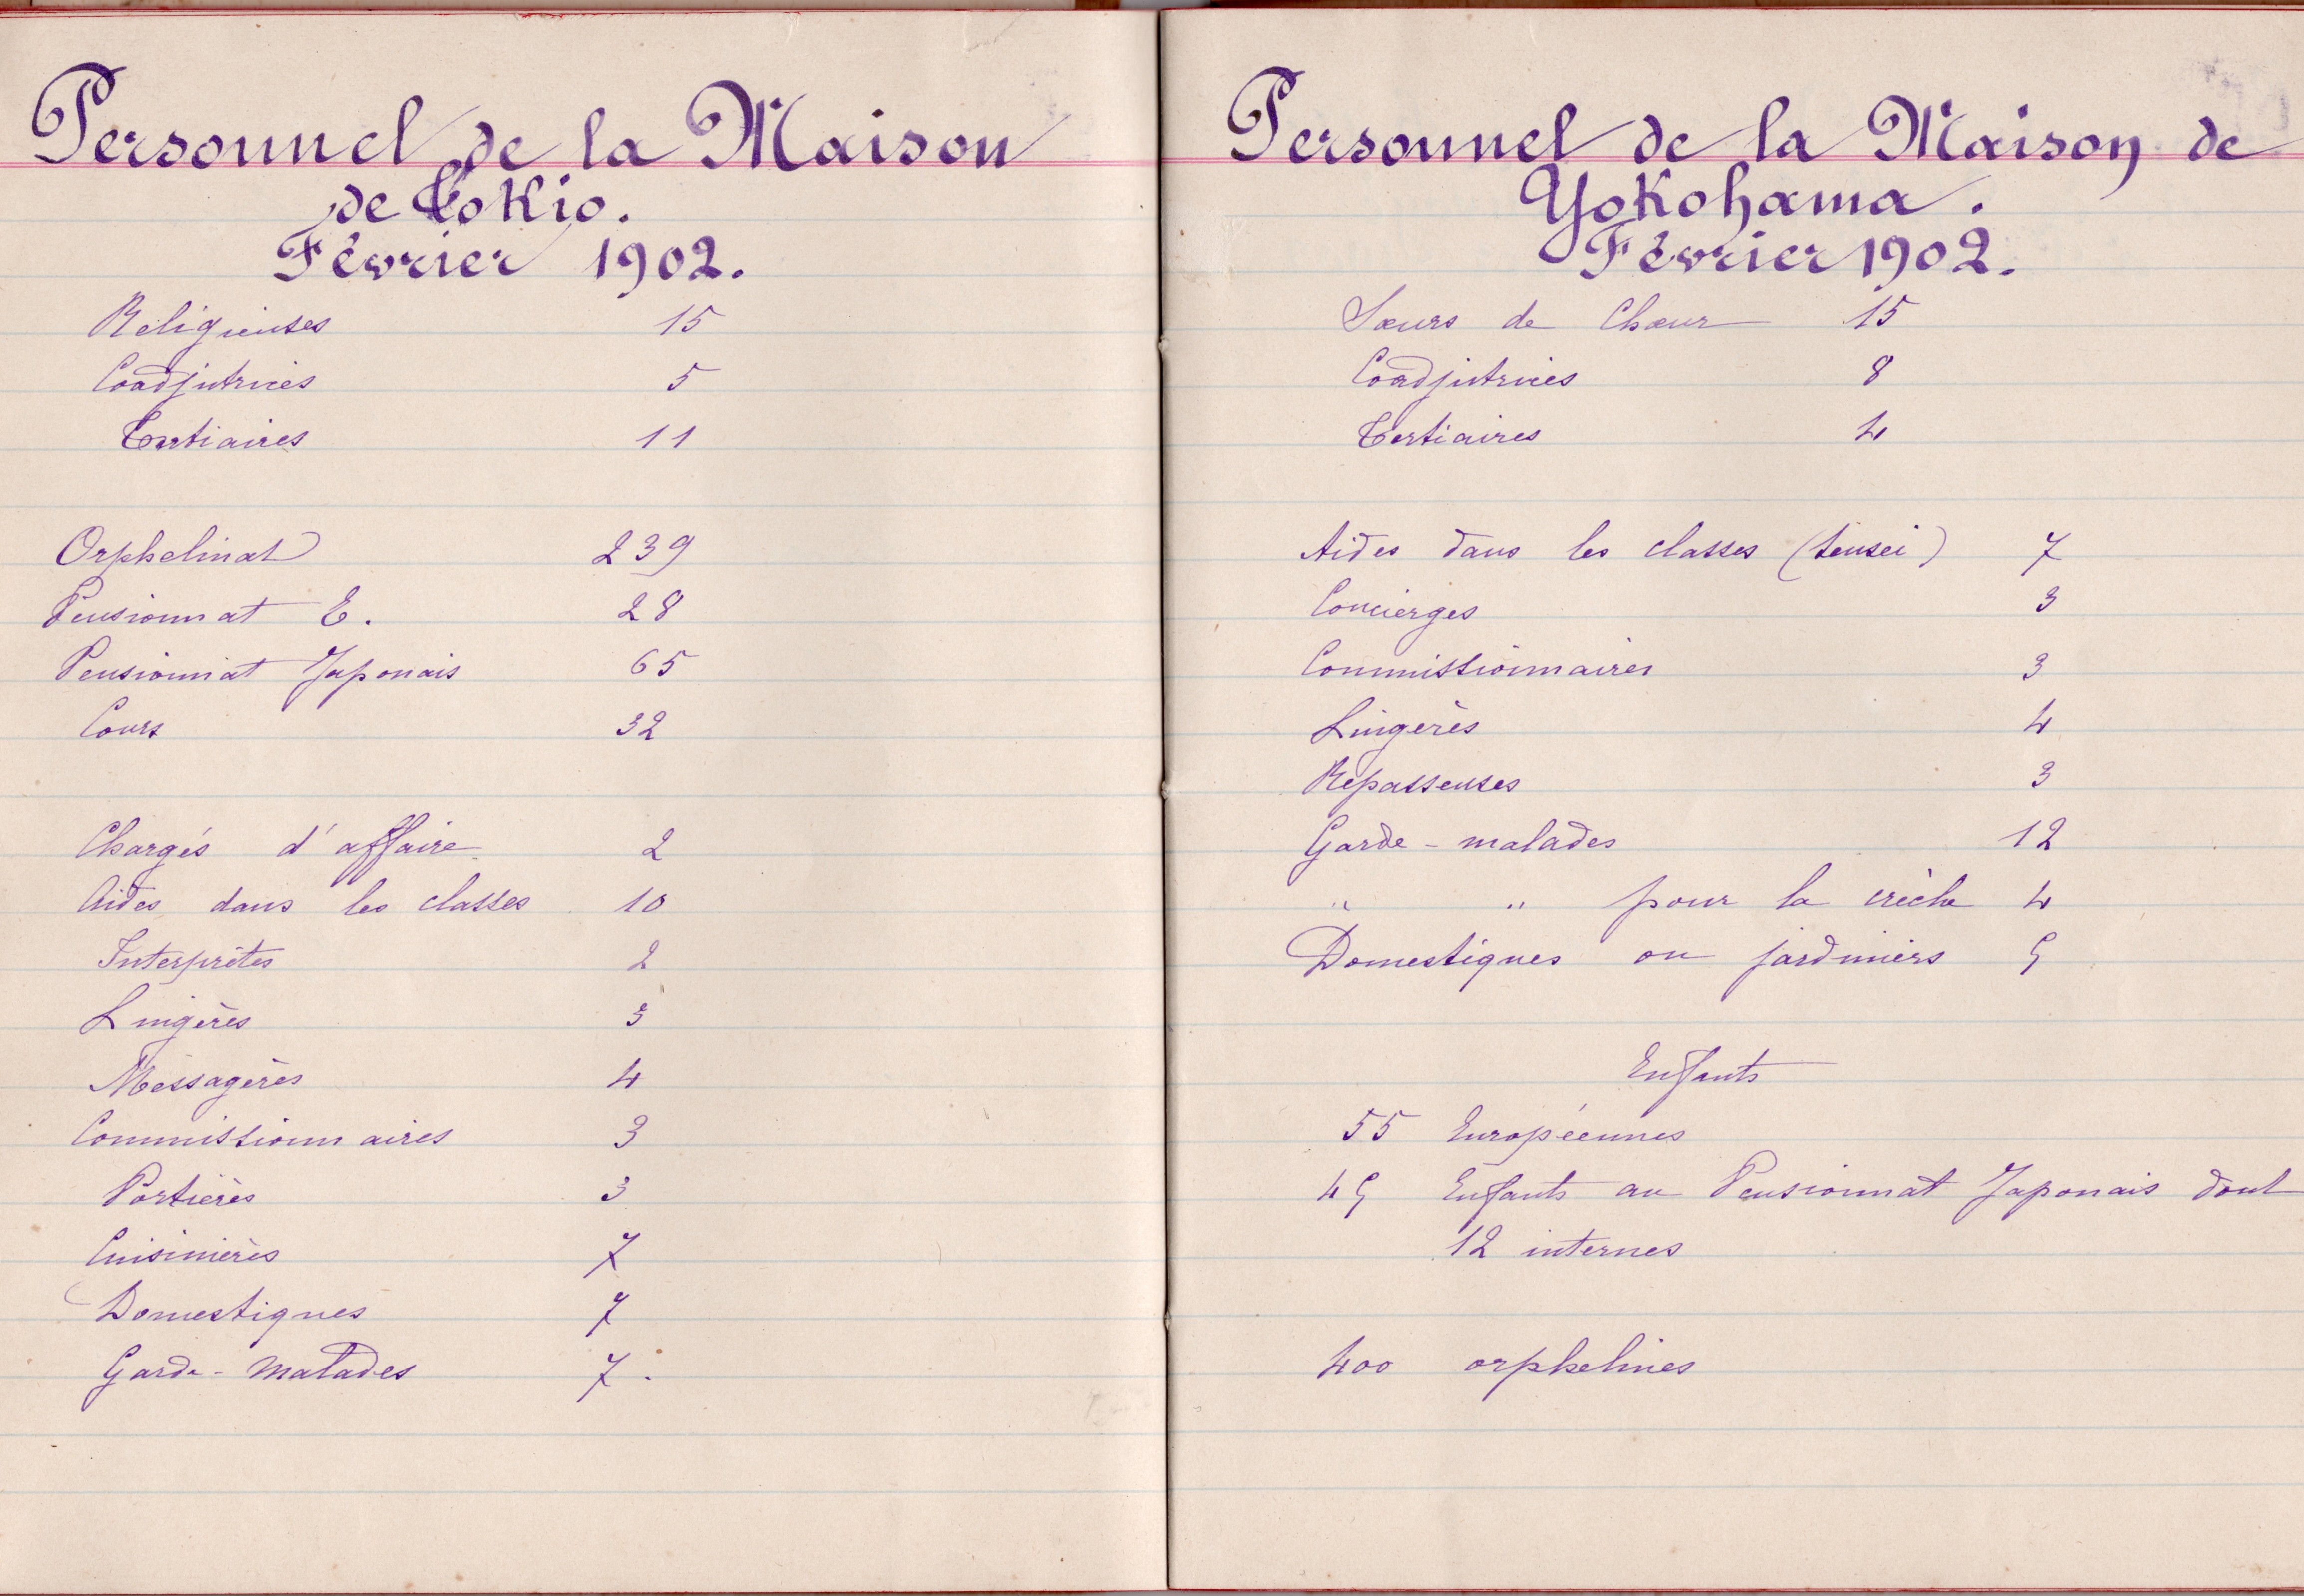 Personnel de la Maison
de Tokio.
Février 1902.
Religieuses 15
Coadjutrices 5
Tertiaires 11
Orphelinat 239
Pensionnat E. 28
Pensionnat Japonais 65
Cours 32
Chargés d'affaire 2
Aides dans les classes 10
Interprètes 2
Lingères 3
Messagères 4
Commissionnaires 3
Portières 3
Cuisinières 7
Domestiques 7
Garde-malades 7.
Personnel de la Maison de
Yokohama.
Février 1902.
Sœurs de Chœur 15
Coadjutrices 8
Tertiaires 4
Aides dans les classes (sensei) 7
Concierges 3
Commissionnaires 3
Lingères 4
Repasseuses 3
Garde-malades 12
" " pour la crèche 4
Domestiques ou jardiniers 5
Enfants
55 Européennes
45 Enfants au Pensionnat Japonais dont
12 internes
400 orphelines